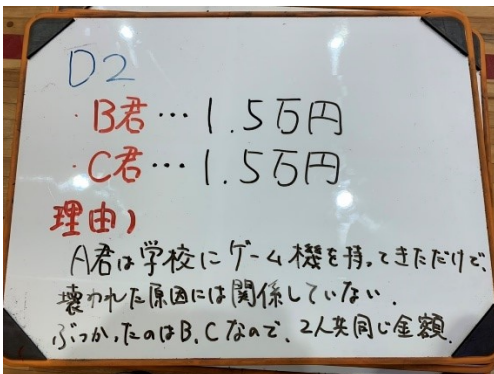 D2
・B君…1.5万円
・C君…1.5万円
理由)
A君は学校にゲーム機を持ってきただけで、
壊われた原因には関係していない.
ぶつかったのはB,Cなので、2人共同じ金額.